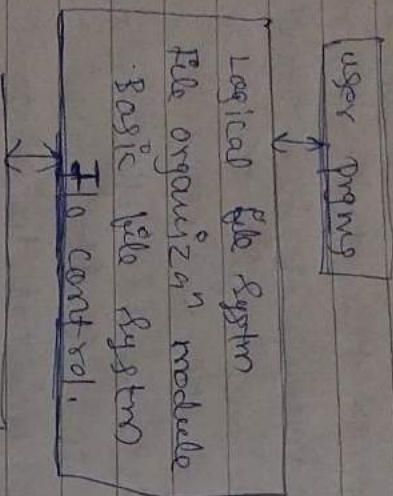 user prgms
Logical file system
File organizaⁿ module
Basic file system
I/o control.